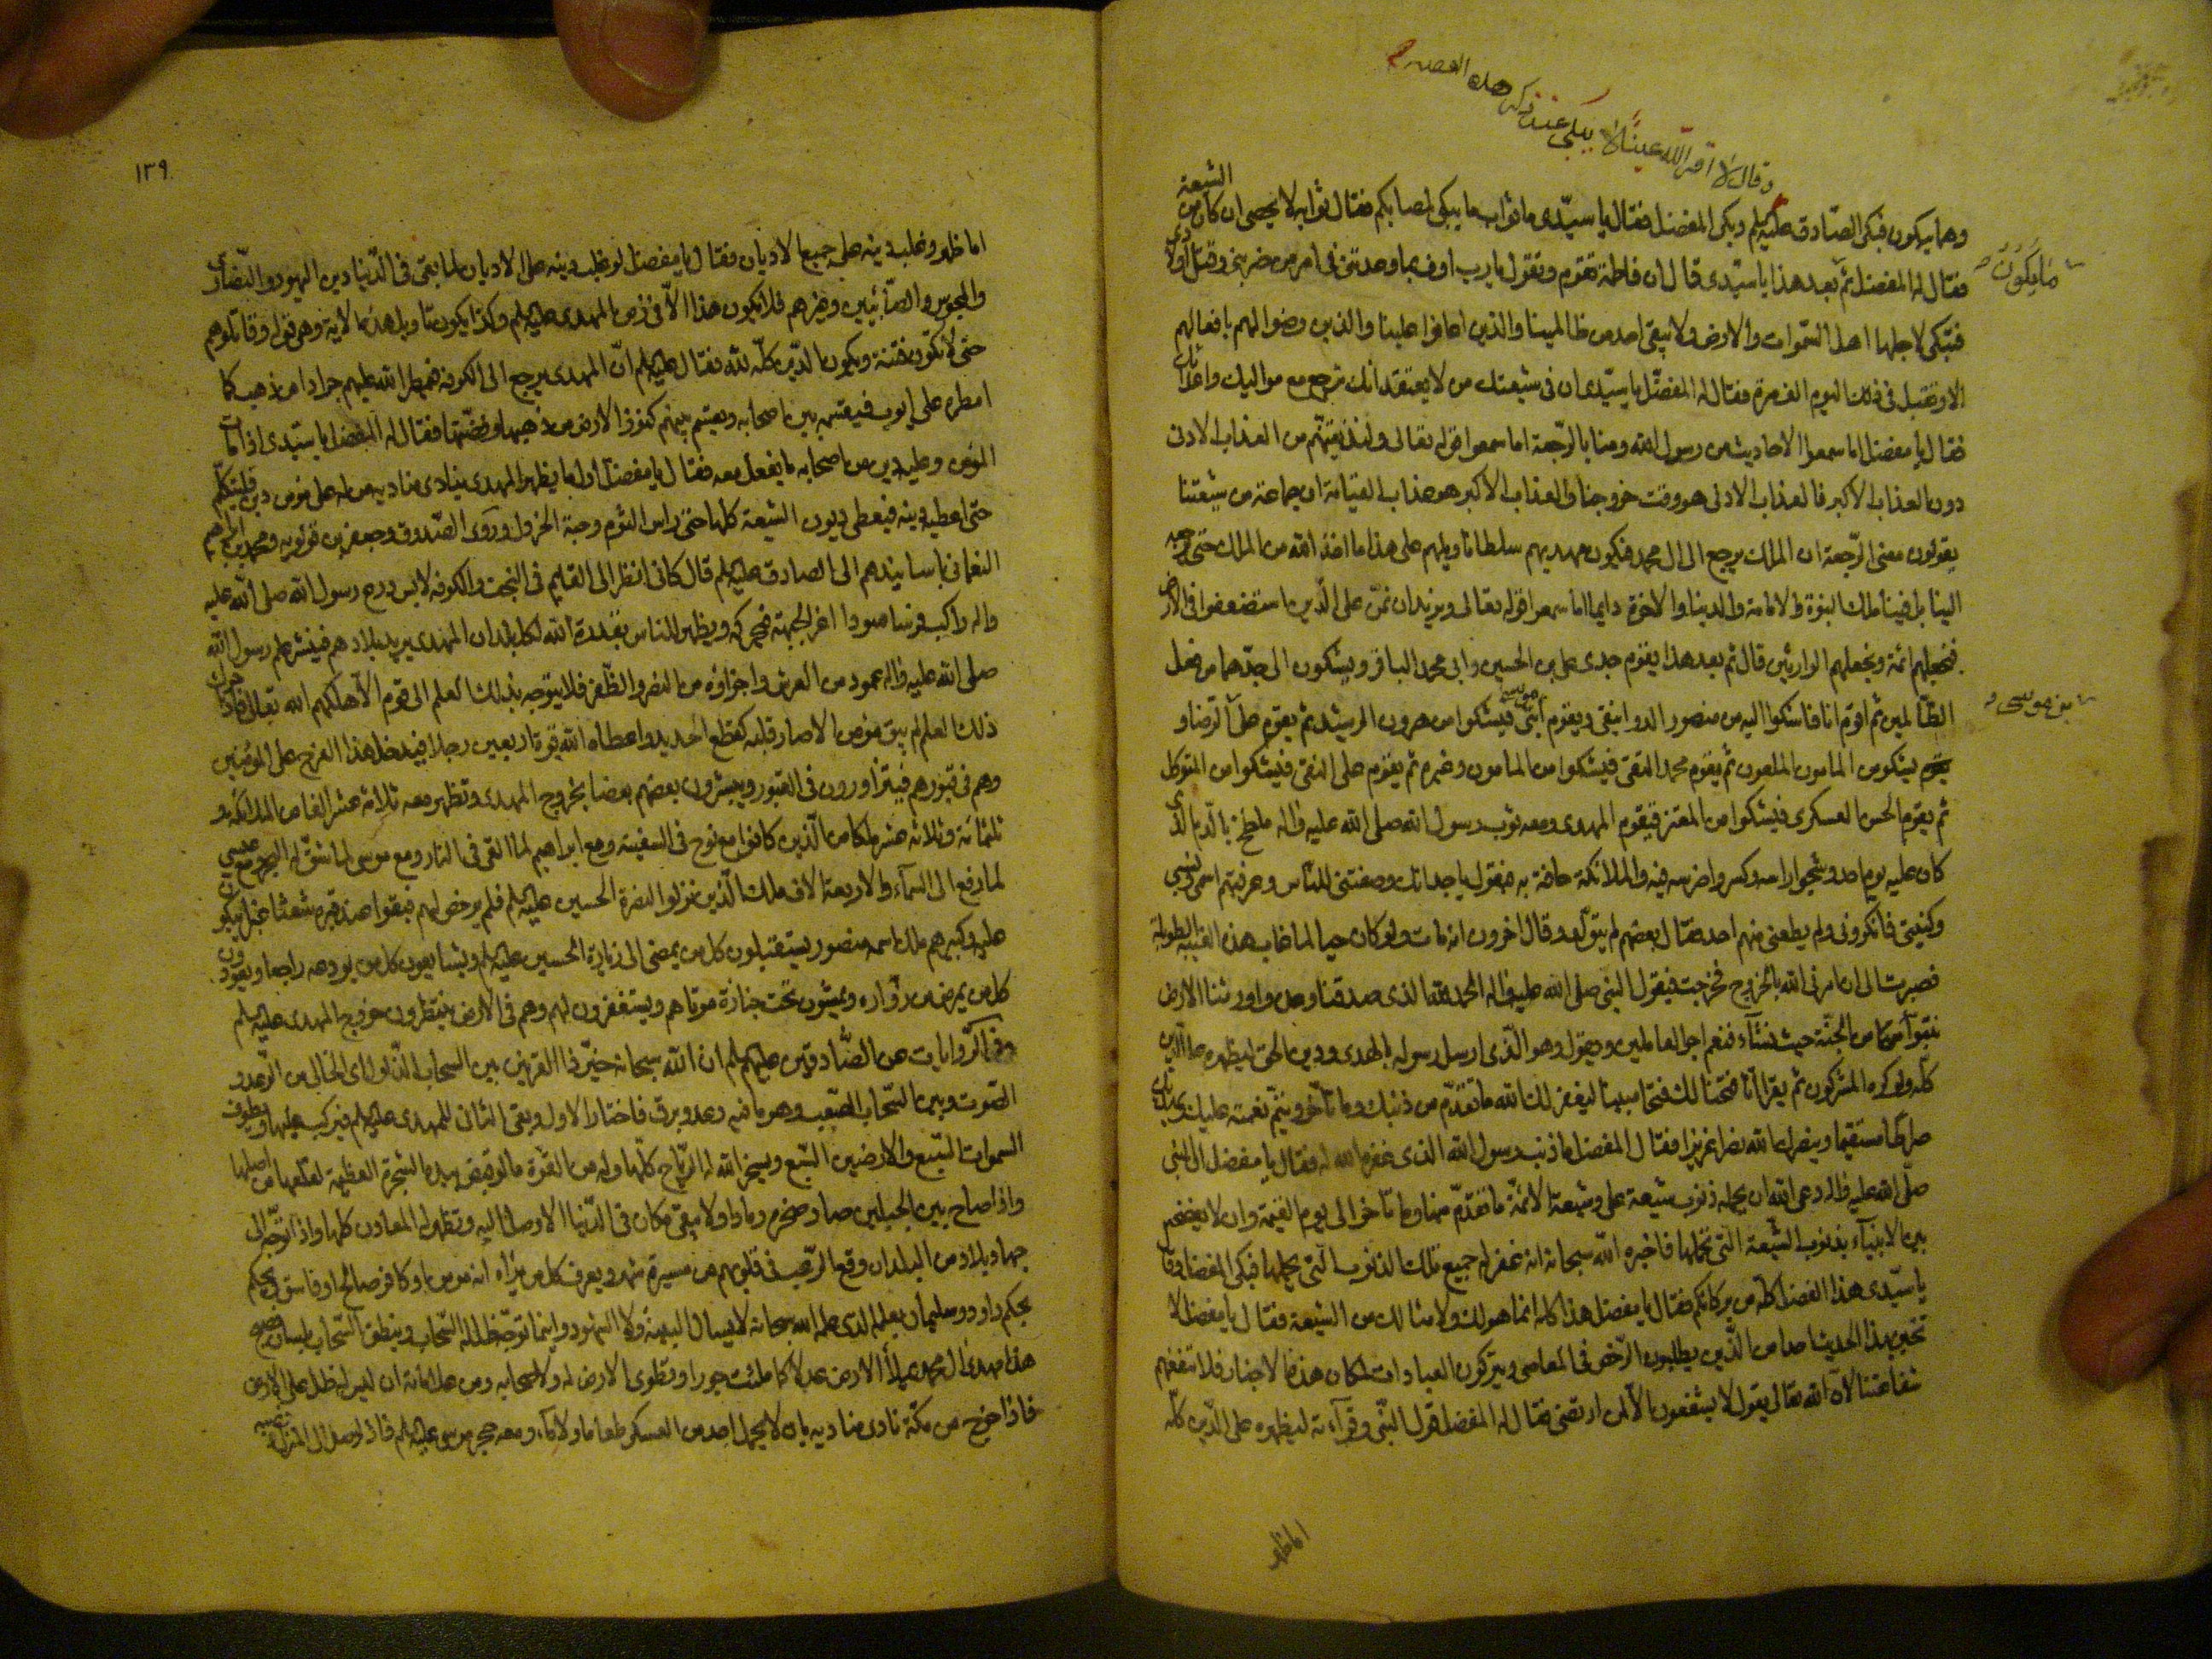 وقال لا اقر الله عينًا لا يبكى عند ذكر هذه القصه
وهما يبكون فبكى الصّادق عليه لم وبكى المفضل فقال يا سيّدى ما ثواب ما يبكى لمصابكم فقال ثوابه لا يحصى ان كان من الشيعة
ما يكون
فقال له المفضل ثم بعد هذا يا سيّدى قال ان فاطمة تقوم وتقول يا رب اوف بما وعدتنى فى امر من ضربنى وقتل اولادى
فتبكى لاجلها اهل السّموات والارض ولا يبقى احد من ظالمينا والذين اعانوا علينا والذين رضوا لهم بافعالهم
الا وتقتل فى ذلك اليوم الف مرة فقال له المفضّل يا سيّدى ان فى شيعتك من لا يعتقد انك ترجع مع مواليك واعدائك
فقال يا مفضل اما سمعوا الاحاديث من رسول الله ومنا بالرّجعة اما سمعوا قوله تعالى ولنذيقنّهم من العذاب الادنى
دون العذاب الاكبر فالعذاب الادنى هو وقت خروجنا والعذاب الاكبر هو عذاب القيامة ان جماعة من شيعتنا
يقولون معنى الرّجعة ان الملك يرجع الى ال محمد فيكون مهديهم سلطانا ويلهم على هذا ما اخذ الله من الملك حتى يرجعه
الينا بل فينا ملك النبوة والامامة والدنيا والاخرة دايما اما سمعوا قوله تعالى ونريد ان نمنّ على الّذين استضعفوا فى الارض
ونجعلهم ائمة ونجعلهم الوارثين قال ثم بعد هذا يقوم جدى على بن الحسين وابى محمد الباقر ويشكون الى جدّهما من فعل
الظّالمين ثم اقوم انا فاشكوا اليه من منصور الدوانيقى ويقوم ابنى موسى فيشكوا من هرون الرشيد ثم يقوم على الرضا و
بن موسى
يشكو من المامون الملعون ثم يقوم محمد التقى فيشكوا من المامون وغيره ثم يقوم على النقى فيشكوا من المتوكل
ثم يقوم الحسن العسكرى فيشكوا من المعتز فيقوم المهدى ومعه ثوب رسول الله صلى الله عليه واله ملطخ بالدّم الذى
كان عليه يوم احد وشجوا راسه وكسروا ضرسه فيه والملائكة حافة به فيقول يا جداه انك وصفتنى للناس وعرفتهم اسمى ونسبى
وكنيتى فانكرونى ولم يطعنى منهم احد فقال بعضهم لم يتولّد وقال اخرون انه مات ولو كان حيا لما غاب هذه الغيبة الطويلة
فصبرت الى ان امرنى الله بالخروج فخرجت فيقول النبى صلى الله عليه واله الحمد لله الذى صدقنا وعده واورثنا الارض
نتبوّأ من الجنّة حيث نشآء فنعم اجر العاملين ويقول وهو الّذى ارسل رسوله بالهدى ودين الحق ليظهره على الدّين
كلّه ولو كره المشركون ثم يقرا انّا فتحنا لك فتحا مبينا ليغفر لك الله ما تقدّم من ذنبك وما تاخّر ويتمّ نعمته عليك ويهديك
صراطا مستقيما وينصرك الله نصرا عزيزا فقال المفضل ما ذنب رسول الله الذى غفره الله له فقال يا مفضل ان النبى
صلّى الله عليه واله دعى الله ان يحمله ذنوب شيعة على وشيعة الائمّة ما تقدّم منها وما تاخر الى يوم القيمة وان لا يفضحهم
بين الانبيآء بذنوب الشيعة الّتى تحملها فاخبره الله سبحانه انه غفر له جميع تلك الذنوب الّتى يحملها فبكى المفضل وقال
يا سيّدى هذا الفضل كله من بركاتكم فقال يا مفضل هذا كله انما هو لك ولامثالك من الشيعة فقال يا مفضل لا
تخبر بهذا الحديث احدا من الّذين يطلبون الرّخص فى المعاصى ويتركون العبادات لمكان هذه الاخبار فلا تنفعهم
شفاعتنا لانّ الله تعالى يقول لا يشفعون الّا لمن ارتضى فقال له المفضل قول النّبى وقرآءته ليظهره على الدّين كلّه
اما ظهر
١٣٩
اما ظهر وغلب دينه على جميع الاديان فقال يا مفضل لو غلب دينه على الاديان لما بقى فى الدّنيا دين اليهود والنّصارى
والمجوس والصّابئين وغيرهم فلا يكون هذا الّا فى زمن المهدى عليه لم وكذا يكون تاويل هذه الاية وهى قوله وقاتلوهم
حتى لا تكون فتنة ويكون الدّين كلّه للّه فقال عليه لم انّ المهدى يرجع الى الكوفة فيمطر الله عليهم جرادا من ذهب كما
امطره على ايوب فيقسم بين اصحابه ويقسم بينهم كنوز الارض من ذهبها وفضّتها فقال له المفضل يا سيّدى اذا مات
المؤمن وعليه دين من اصحابه ما يفعل معه فقال يا مفضل اول ما يظهر المهدى ينادى مناديه من له على مؤمن دين فليتكلّم
حتى اعطيه دينه فيعطى ديون الشيعة كلها حتى راس الثوم وحبة الخردل وروى الصّدوق وجعفر بن قولويه ومحمد بن ابراهيم
النعمانى باسانيدهم الى الصادق عليه لم قال كانى انظر الى القايم فى النجف والكوفه لابس درع رسول الله صلى الله عليه
واله راكب فرسا اسودا اغر الجبهة فيحركه ويظهر للناس بقدرة الله لكل بلدان المهدى يريد بلادهم فينشر علم رسول الله
صلى الله عليه واله عمود من العرش واجزاؤه من النصر والظّفر فلا يتوجه بذلك العلم الى قوم الّا هلكهم الله تعالى فاذا حرك
ذلك العلم لم يبق مؤمن الا صار قلبه كقطع الحديد واعطاه الله قوة اربعين رجلا فيدخل هذا الفرج على المؤمنين
وهم فى قبورهم فيتزاورون فى القبور ويبشرون بعضهم بعضا بخروج المهدى وتظهر معه ثلاثة عشر الفا من الملائكة و
ثلثمائة وثلاثه عشر ملكا من الّذين كانوا مع نوح فى السفينة ومع ابراهيم لما القى فى النار ومع موسى لما شقّ له البحر ومع عيسى
لما رفع الى السمآء والاربعة الاف ملك الّذين نزلوا لنصرة الحسين عليه لم فلم يرخص لهم فبقوا عند قبره شعثا غبرا يبكون
عليه وكبيرهم ملك اسمه منصور يستقبلون كل من يمضى الى زيارة الحسين عليه لم ويشايعون كل من يودعه راجعا ويعودون
كل من يمرض من زوّاره ويمشون تحت جنازة موتاهم ويستغفرون لهم وهم فى الارض ينتظرون خروج المهدى عليه لم
وفى الرّوايات عن الصّادقين عليهم لم ان الله سبحانه خيّر ذا القرنين بين السحاب الذّلول اى الخالى من الرّعد و
الصّوت وبين السّحاب الصّعب وهو ما فيه رعد وبرق فاختار الاول وبقى الثانى للمهدى عليه لم فيركب عليها ويطوف
السموات السّبع والارضين السّبع ويسخر الله له الرّياح كلّها وله من القوّة ما لو قبض بيده الشجرة العظيمة لقلعها من اصلها
واذا صاح بين الجبلين صار صخرهم رمادا ولا يبقى مكان فى الدّنيا الا وصل اليه وتظهر له المعادن كلها واذا توجّه الى
جهاد بلاد من البلدان وقع الرّعب فى قلوبهم من مسيرة شهر ويعرف كل من يراه انه مومن او كافر صالح او فاسق ويحكم
بحكم داود وسليمان بعلمه الذى علمه الله سبحانه لا يسال البيّنة ولا الشهود واينما توجّه ظلله السّحاب وينطق السّحاب بلسان فصيح
هذا مهدى ال محمد يملأ الارض عدلا كما ملئت جورا وتطوى الارض له ولاصحابه ومن علاماته ان ليس له ظل على الارض
فاذا خرج من مكّة نادى مناديه بان لا يحمل احد من العسكر طعاما ولا ماء ومعه حجر موسى عليه لم فاذا وصل الى المنزل